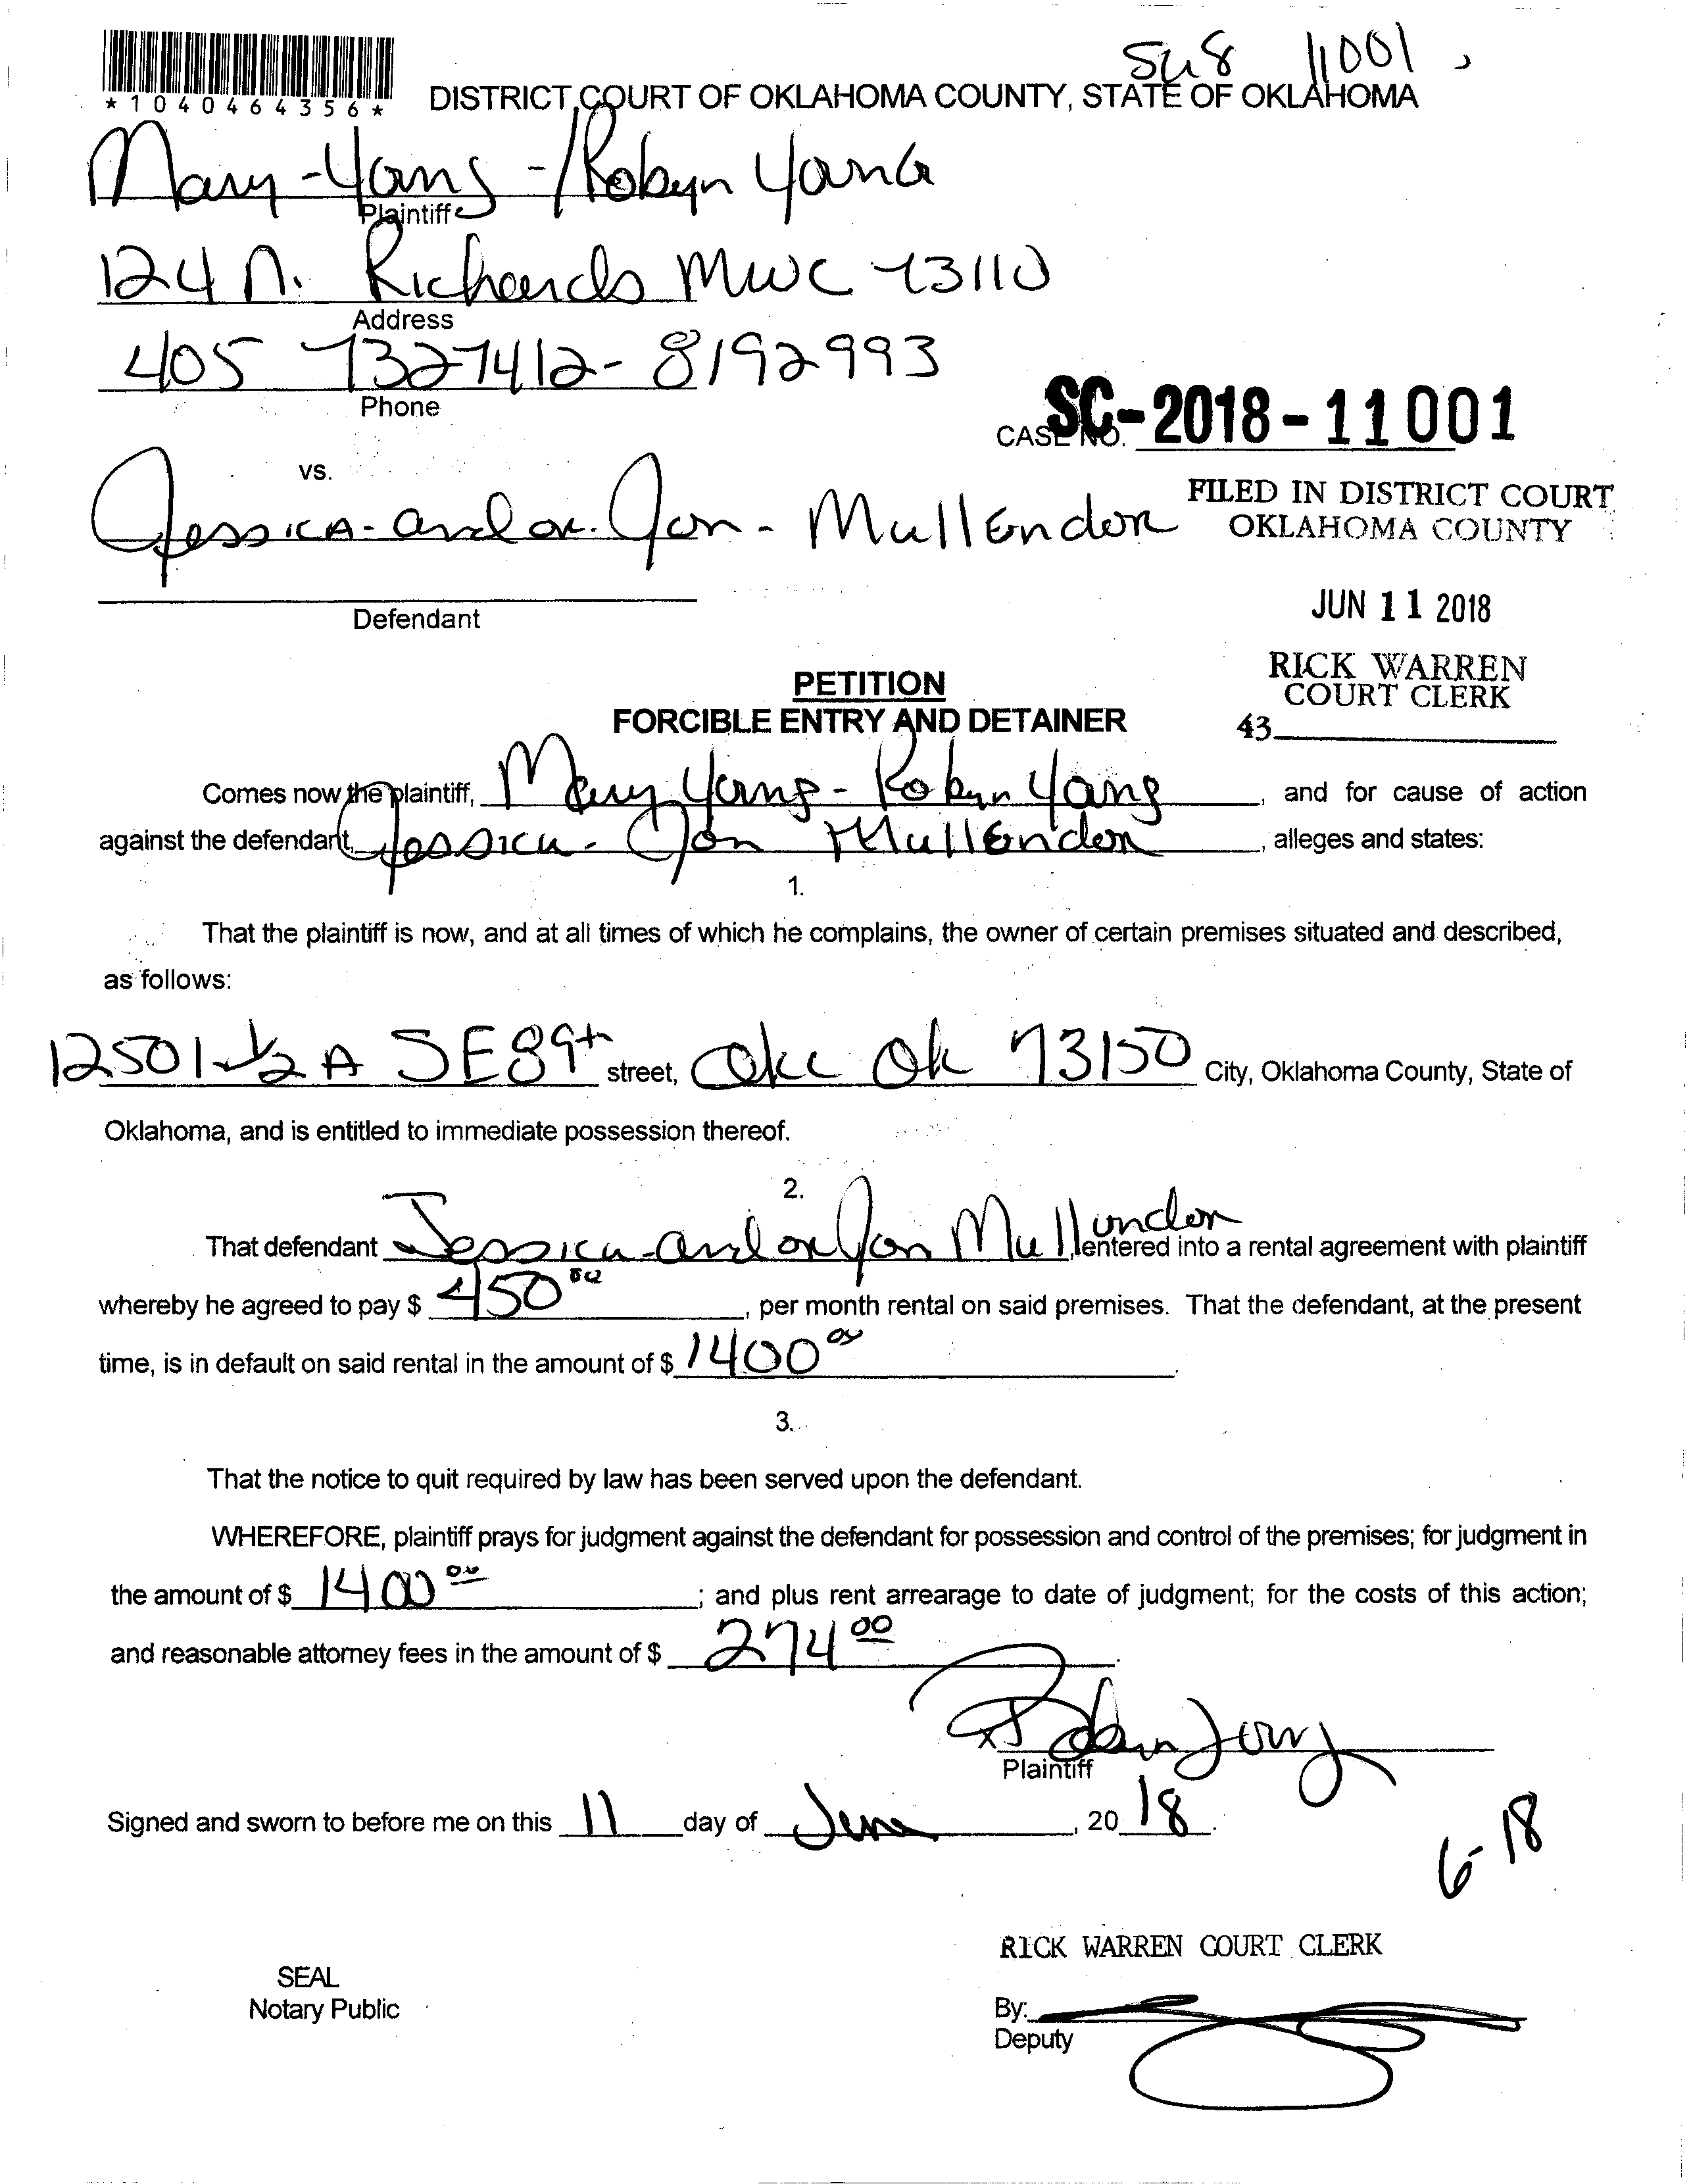 SC8 11001
*1040464356*
DISTRICT COURT OF OKLAHOMA COUNTY, STATE OF OKLAHOMA
Mary-Yong-/Robyn Young
Plaintiff
124 N. Richards MWC 73110
Address
405 7327412-8192993
Phone
CASE NO. SC-2018-11001
vs.
Jessica-and or. Jon-Mullendor
FILED IN DISTRICT COURT
OKLAHOMA COUNTY
Defendant
JUN 11 2018
RICK WARREN
COURT CLERK
43
PETITION
FORCIBLE ENTRY AND DETAINER
Comes now the plaintiff, Mary Yong-Robyn Yong, and for cause of action
against the defendant, Jessica-Jon Mullendor, alleges and states:
1.
That the plaintiff is now, and at all times of which he complains, the owner of certain premises situated and described,
as follows:
12501-1/2 A SE 89th street, Okc Ok 73150 City, Oklahoma County, State of
Oklahoma, and is entitled to immediate possession thereof.
2.
That defendant Jessica-and or Jon Mullendor, entered into a rental agreement with plaintiff
whereby he agreed to pay $ 450 00, per month rental on said premises. That the defendant, at the present
time, is in default on said rental in the amount of $ 1400 00.
3.
That the notice to quit required by law has been served upon the defendant.
WHEREFORE, plaintiff prays for judgment against the defendant for possession and control of the premises; for judgment in
the amount of $ 1400 00; and plus rent arrearage to date of judgment; for the costs of this action;
and reasonable attorney fees in the amount of $ 274 00.
X Robyn Young
Plaintiff
Signed and sworn to before me on this 11 day of June, 20 18.
6-18
RICK WARREN COURT CLERK
SEAL
Notary Public
By:
Deputy